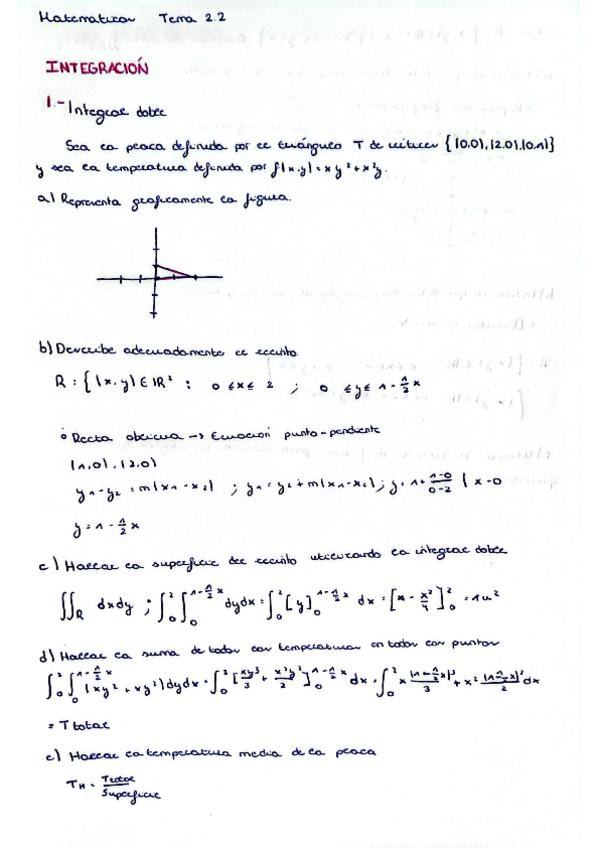 Matemáticas Tema 2.2
INTEGRACIÓN
1.- Integral doble
Sea la placa definida por el triángulo T de vértices {(0,0), (2,0), (0,1)}
y sea la temperatura definida por f(x,y) = xy² + x²y.
a) Representa gráficamente la figura.
b) Describe adecuadamente el recinto.
R : {(x,y) ∈ ℝ² : 0 ≤ x ≤ 2 ; 0 ≤ y ≤ 1 - 1/2 x
Recta oblicua → Ecuación punto-pendiente
(1,0), (2,0)
y₁ - y₂ = m(x₁ - x₂) ; y₁ = y₂ + m(x₁ - x₂) ; y = 1 + (1-0)/(0-2) (x-0
y = 1 - 1/2 x
c) Hallar la superficie del recinto utilizando la integral doble
∬_R dxdy ; ∫₀² ∫₀^(1-1/2 x) dydx = ∫₀² [y]₀^(1-1/2 x) dx = [x - x²/4]₀² = 1u²
d) Hallar la suma de todas las temperaturas en todos los puntos
∫₀² ∫₀^(1-1/2 x) (xy² + xy²) dydx = ∫₀² [xy³/3 + x²y²/2]₀^(1-1/2 x) dx = ∫₀² x (1-1/2 x)³/3 + x² (1-1/2 x)²/2 dx
= T total
e) Hallar la temperatura media de la placa
T_M = Ttotal/Superficie